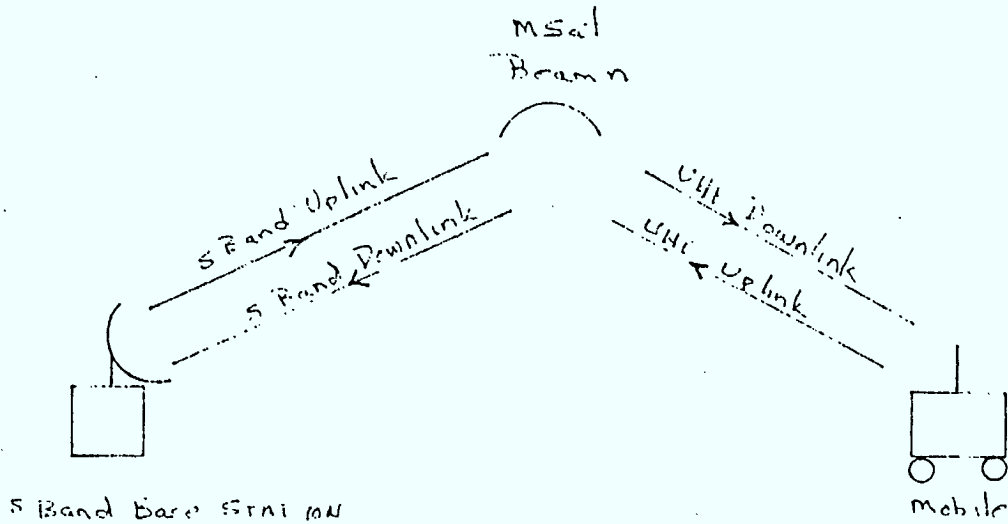 MSat
Beam n
S Band Uplink
S Band Downlink
UHF Downlink
UHF Uplink
S Band Base Station
Mobile